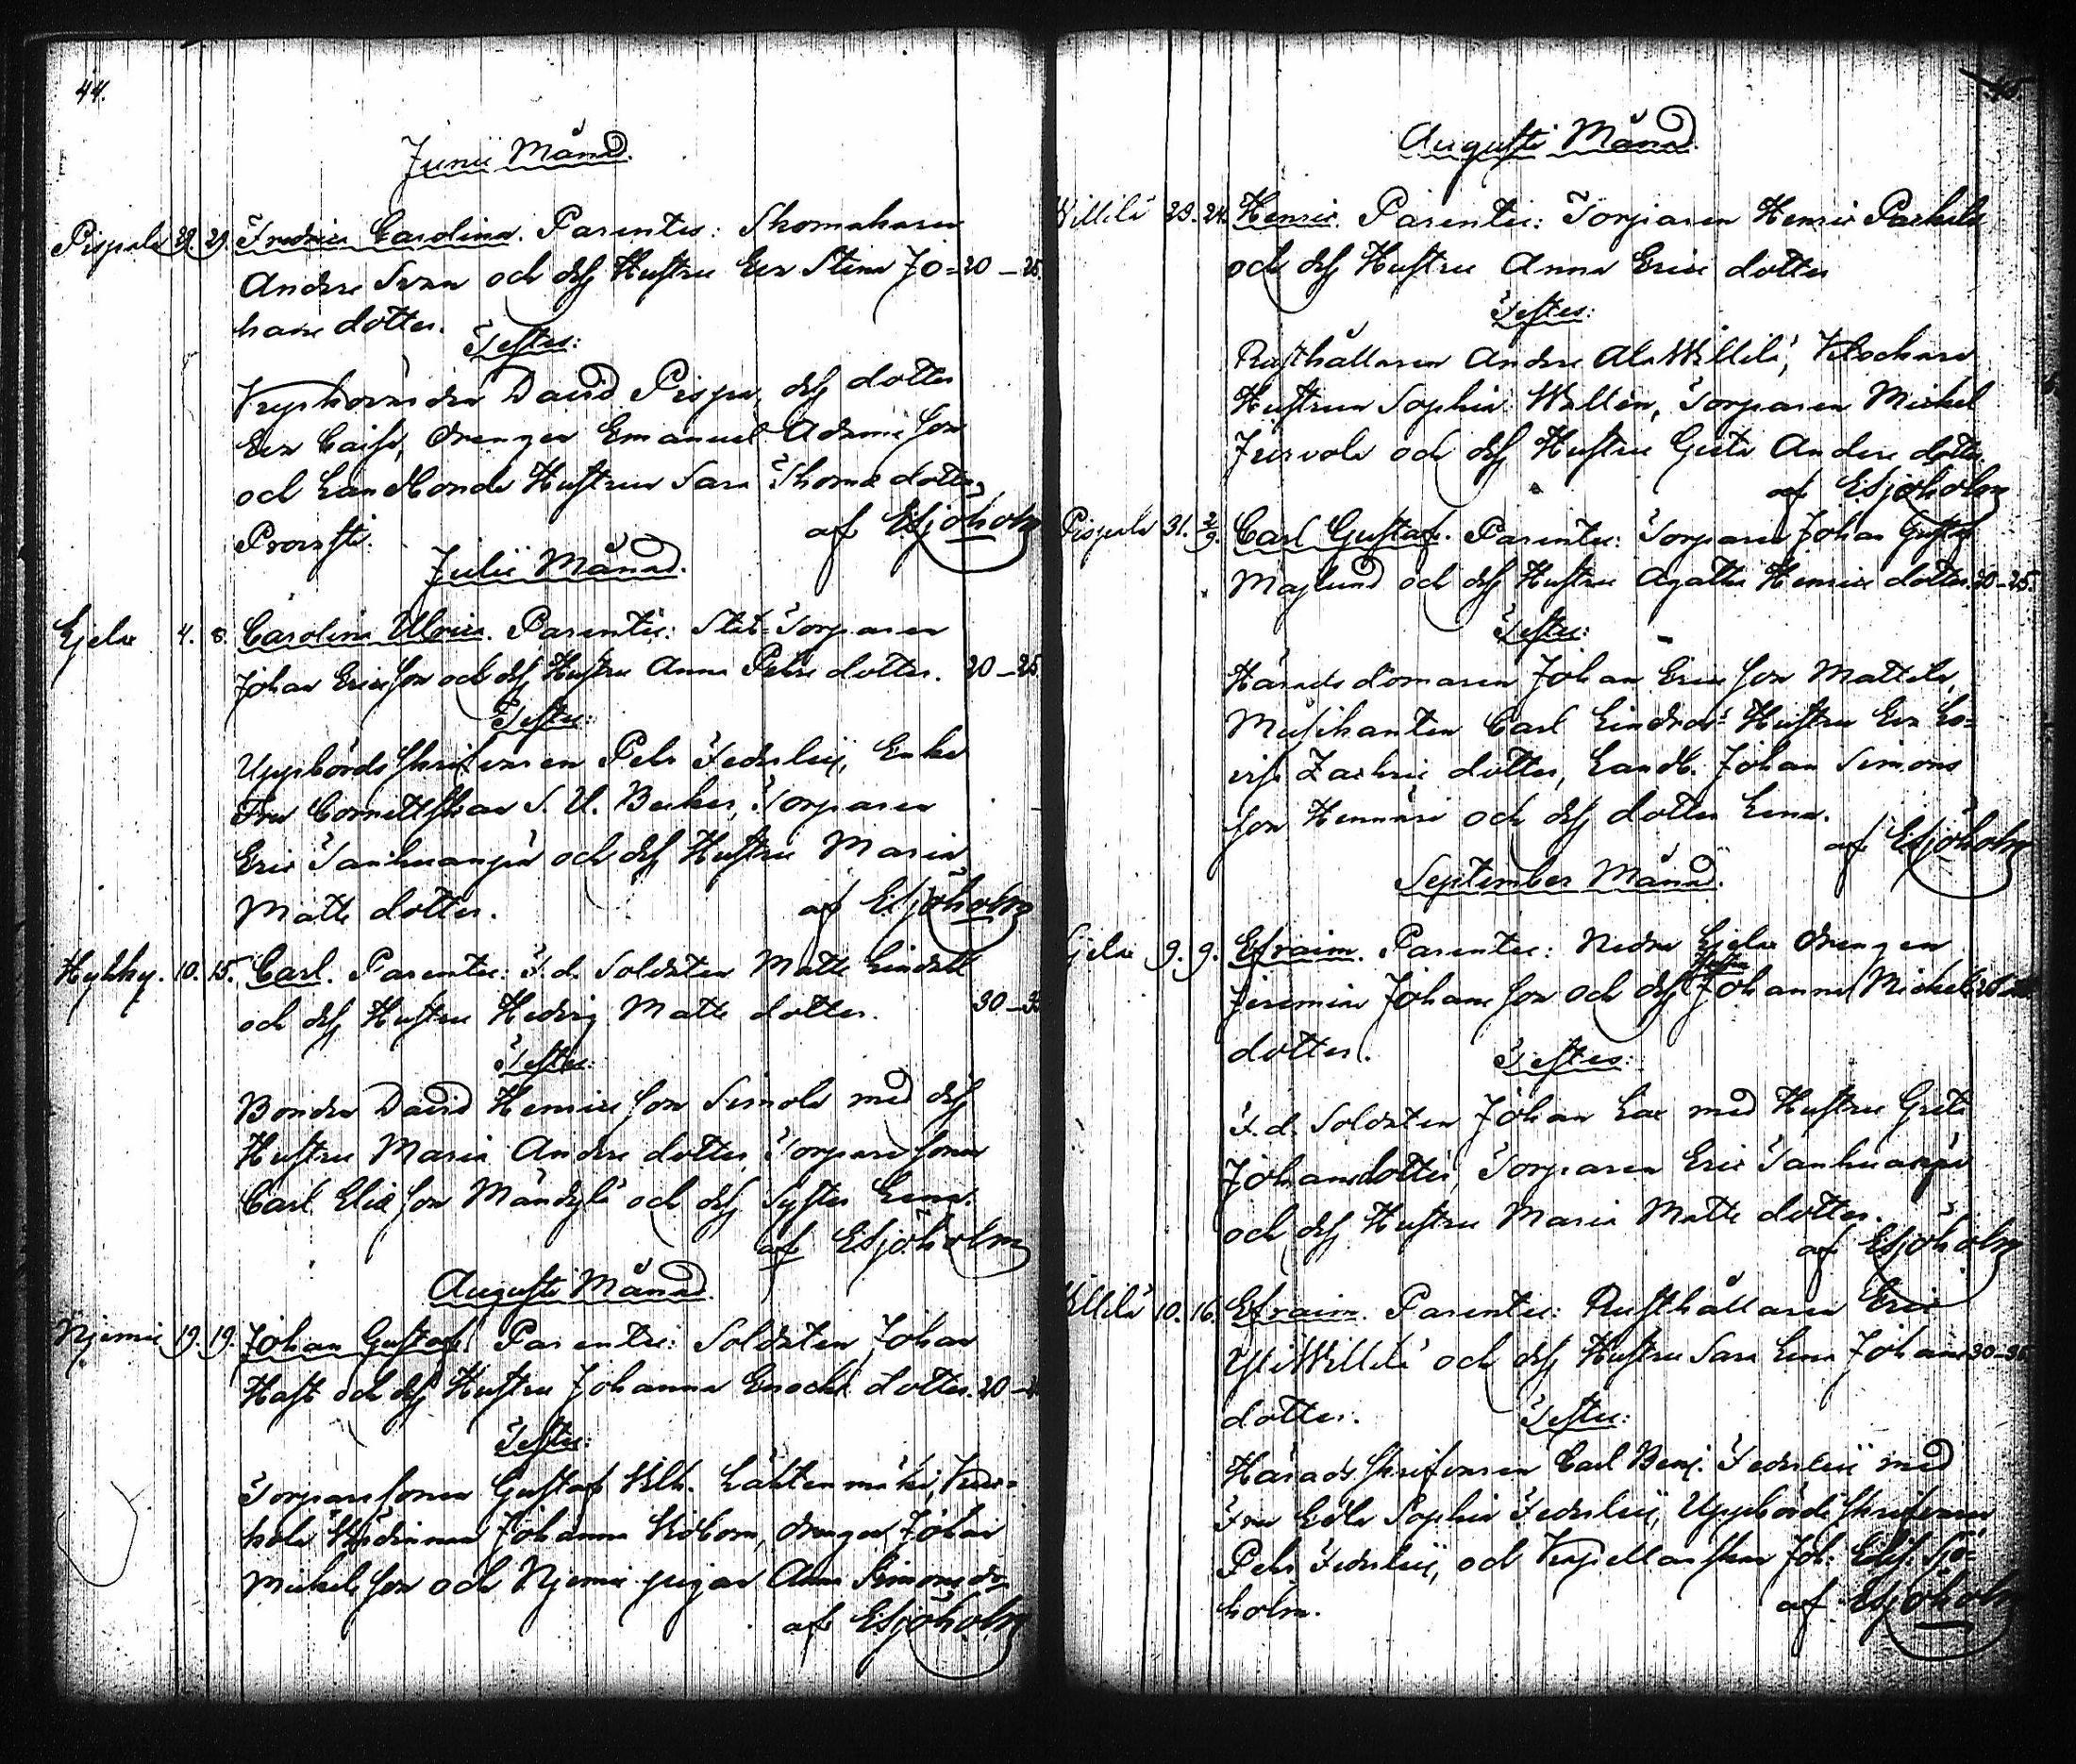 44.
Junii Månad.
Pispala 29. Fredrica Carolina. Parentes: Skomakaren
Anders Svan och dess Hustru Eva Stina Jo= 20–25.
hans dotter.
Testes:
David Pispa, dess dotter
Eva Caisa, drengen Emanuel Adams son
och Landbonde Hustrun Sara Thomæ dotter
af ESjöholm
Julii Månad.
Gjelax 4. 8. Carolina Ulrica. Parentes: Stat-Torparen
Johan Ericsson och dess Hustru Anna Pehrs dotter. 20–25
Testes:
Uppbördsskrifvaren Pehr Federleij, Enke
Fru Cornettskan S. U. Becker, Torparen
Eric Tanhuanpä och dess Hustru Maria
Matts dotter. af ESjöholm
Hykky. 10. 15. Carl. Parentes: F.d. Soldaten Matts Lindstt
och dess Hustru Hedvig Matts dotter. 30–
Testes:
Bonden David Henrics son Simola med dess
Hustru Maria Anders dotter, Torparesonen
Carl Eliæ son och dess Syster Lena.
af ESjöholm
Augusti Månad.
Njemis 19. 19. Johan Gustaf. Parentes: Soldaten Johan
Hast och dess Hustru Johanna Enochs dotter. 20–
Testes:
Torparesonen Gustaf Wilh. Lähtenmäki,
Johanna drengen Johan
Mickels son och Njemis pigan Anna Simonsdr
af ESjöholm
45
Augusti Månad.
Willilä 23. 24. Henric. Parentes: Torparen Henric
och dess Hustru Anna Erics dotter
Testes:
Rusthållaren Anders AlaWillilä, Klockare
Hustrun Sophia Wallen, Torparen Mickel
och dess Hustru Greta Anders dotter.
af ESjöholm
Pispala 31. 2/9. Carl Gustaf. Parentes: Torparen Johan Gustaf
Maslund och dess Hustru Agatha Henrics dotter. 20–25.
Testes:
Häradsdomaren Johan Erics son Mattila,
Musikanten Carl Lindroos Hustru Eva Lo=
visa Zachris dotter, Landb. Johan Simons
son Hennäri och dess dotter Lena.
af ESjöholm
September Månad.
Gjelax 9. 9. Efraim. Parentes: Nedre Gjelax drengen
Jeremias Johans son och dess Hustru Johanna Mickels
dotter.
Testes:
F.d. Soldaten Johan Lax med Hustru Greta
Johansdotter, Torparen Eric Tanhuanpä
och dess Hustru Maria Matts dotter.
af ESjöholm
Willilä 10. 16. Efraim. Parentes: Rusthållaren Eric
YliWillilä och dess Hustru Sara Lena Johans 30–35
dotter.
Testes:
Häradsskrifvaren Carl Benj. Federleij med
Fru Edla Sophia Federleij, Uppbördsskrifvaren
Pehr Federleij, och Kapellanskan Joh: Elis: Sjö=
holm. af ESjöholm